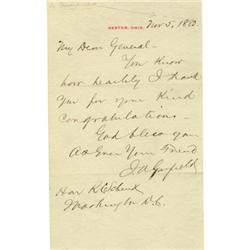 MENTOR, OHIO.
Nov 5, 1880.
My Dear General—
You know
how heartily I thank
you for your kind
congratulations—
God bless you
As Ever Your Friend
J. A. Garfield
Hon R C Schenck
Washington D.C.